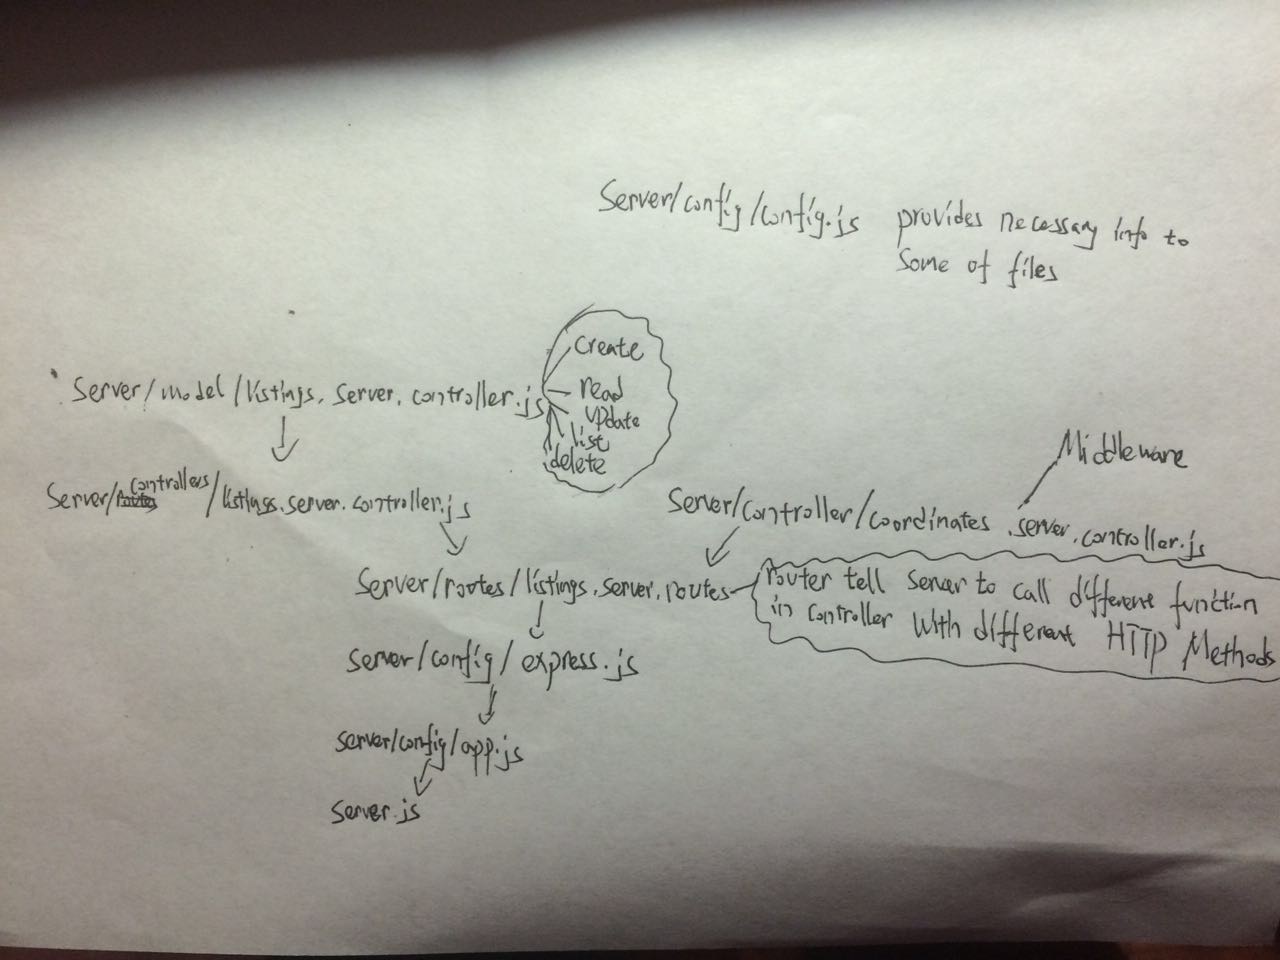 Server/config/config.js provides necessary info to
some of files
Server/model/listings.server.controller.js
create
read
update
list
delete
Middleware
Server/controllers/listings.server.controller.js
Server/controller/coordinates.server.controller.js
Server/routes/listings.server.routes
router tell server to call different function
in controller with different HTTP Methods
server/config/express.js
server/config/app.js
server.js